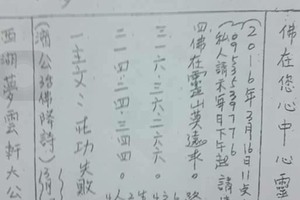 佛在您心中心靈
(2016年3月16日11支
(0953539776
私人請求每日下午起請
四佛在靈山莫遠求。
三一六.三六.三六六。
二一四.二四.三四四。
一主文:.花功失敗
(濟公話佛降詩)
西湖夢雲軒大公